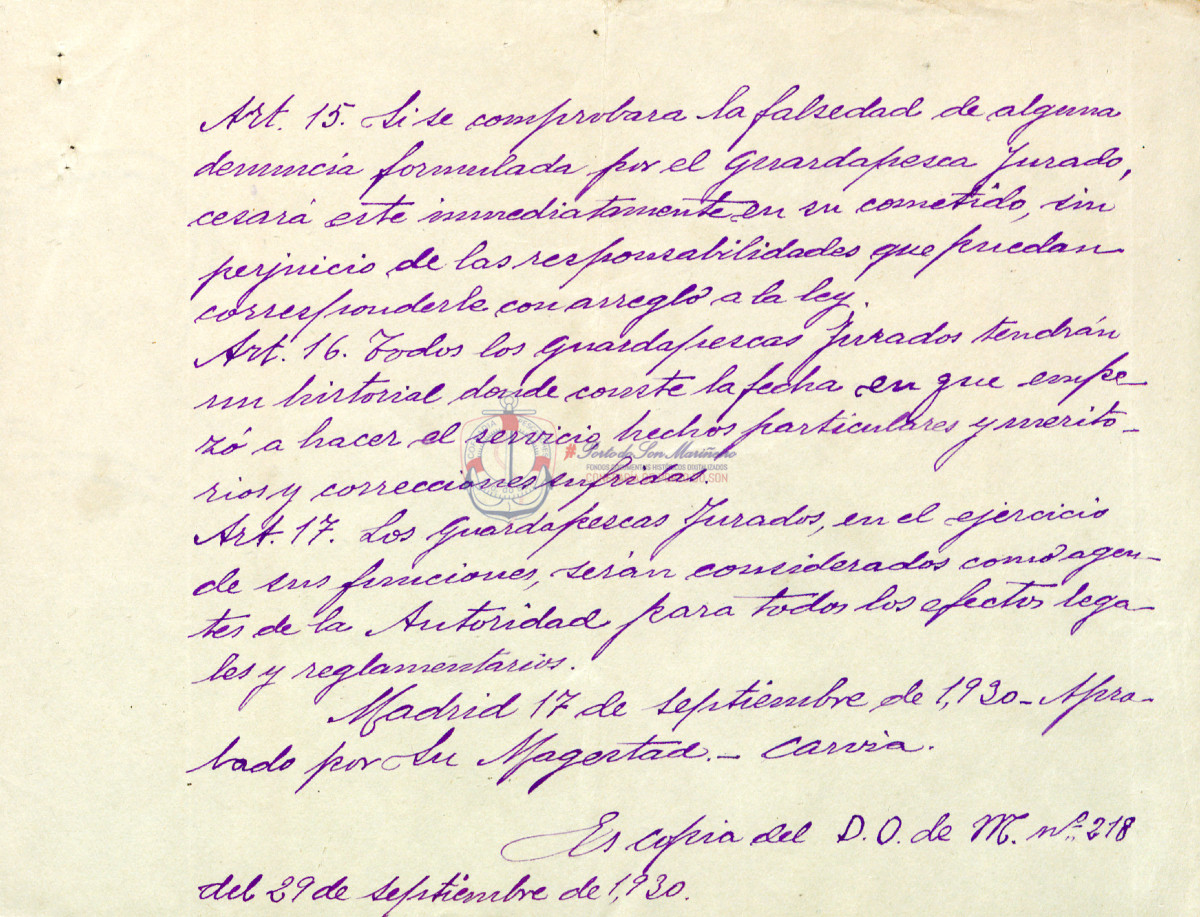 Art. 15. Si se comprobara la falsedad de alguna
denuncia formulada por el Guardapesca Jurado,
cesará este inmediatamente en su cometido, sin
perjuicio de las responsabilidades que puedan
corresponderle con arreglo a la ley.
Art. 16. Todos los Guardapescas Jurados tendrán
un historial donde conste la fecha en que empe-
zó a hacer el servicio, hechos particulares y merito-
#Porto do Son Mariñeiro
FONDOS DOCUMENTAIS HISTÓRICOS DIXITALIZADOS
rios y correcciones sufridas.
Art. 17. Los Guardapescas Jurados, en el ejercicio
de sus funciones, serán considerados como agen-
tes de la Autoridad para todos los efectos lega-
les y reglamentarios.
Madrid 17 de septiembre de 1,930- Apro-
bado por Su Magestad.- Carvia.
Es copia del D.O. de M. nº 218
del 29 de septiembre de 1,930.